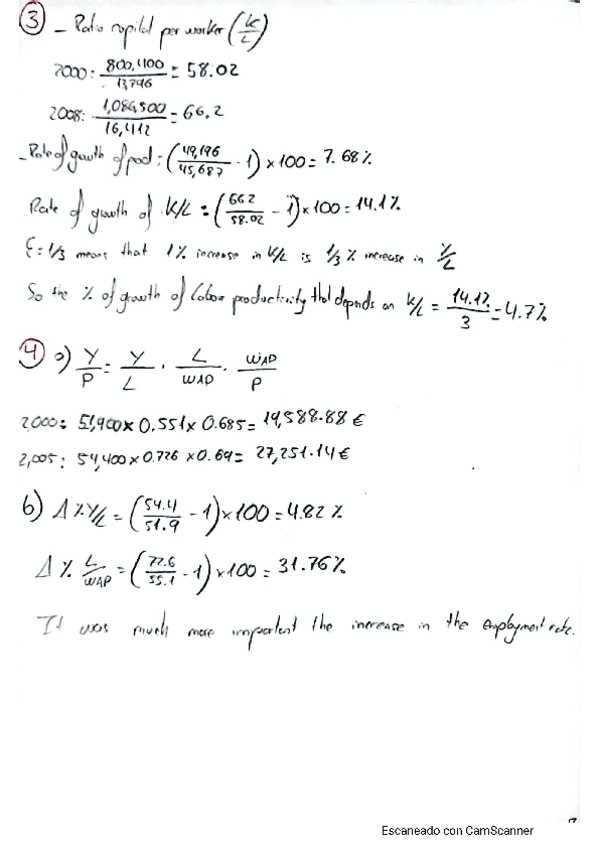 ③ - Ratio capital per worker (K/L)
2000: 800,400/13,796 = 58.02
2008: 1,086,500/16,412 = 66.2
- Rate of growth of prod: (49,196/45,687 - 1) × 100 = 7.68%
Rate of growth of K/L = (66.2/58.02 - 1) × 100 = 14.1%
Ɛ = 1/3 means that 1% increase in K/L is 1/3 % increase in Y/L
So the % of growth of labour productivity that depends on K/L = 14.1%/3 = 4.7%
④ a) Y/P = Y/L · L/WAP · WAP/P
2,000: 51,900 × 0.551 × 0.685 = 19,588.88 €
2,005: 54,400 × 0.726 × 0.69 = 27,251.14 €
b) Δ % Y/L = (54.4/51.9 - 1) × 100 = 4.82 %
Δ % L/WAP = (72.6/55.1 - 1) × 100 = 31.76%
It was much more important the increase in the employment rate.
Escaneado con CamScanner